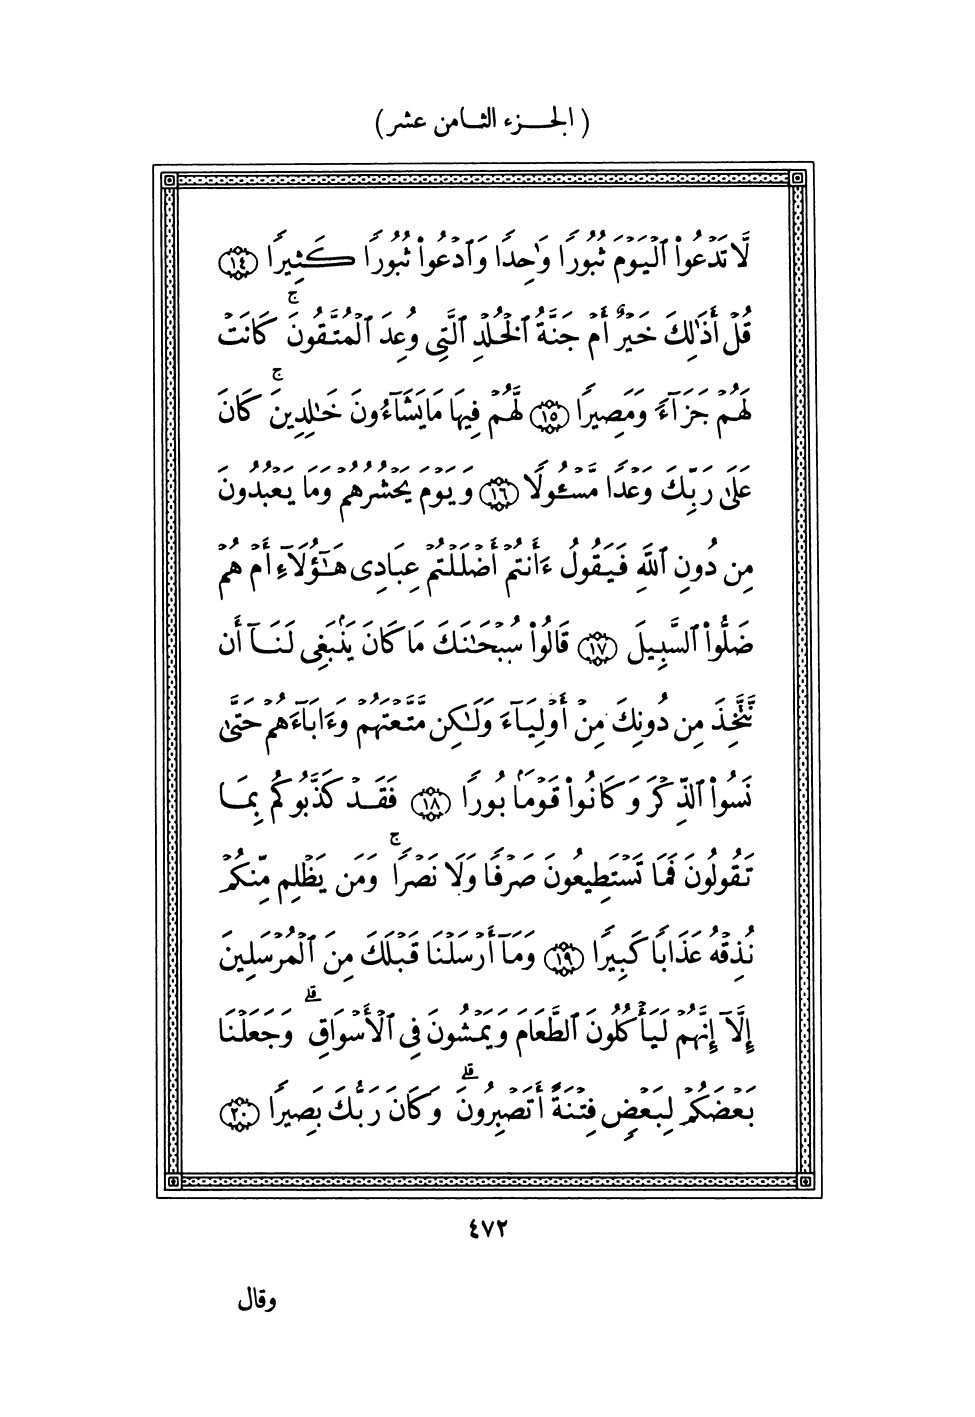 ( الجزء الثامن عشر )
لَّا تَدْعُواْ ٱلْيَوْمَ ثُبُورًا وَٰحِدًا وَٱدْعُواْ ثُبُورًا كَثِيرًا ١٤
قُلْ أَذَٰلِكَ خَيْرٌ أَمْ جَنَّةُ ٱلْخُلْدِ ٱلَّتِى وُعِدَ ٱلْمُتَّقُونَۚ كَانَتْ
لَهُمْ جَزَآءً وَمَصِيرًا ١٥ لَّهُمْ فِيهَا مَا يَشَآءُونَ خَٰلِدِينَۚ كَانَ
عَلَىٰ رَبِّكَ وَعْدًا مَّسْـُٔولًا ١٦ وَيَوْمَ يَحْشُرُهُمْ وَمَا يَعْبُدُونَ
مِن دُونِ ٱللَّهِ فَيَقُولُ ءَأَنتُمْ أَضْلَلْتُمْ عِبَادِى هَٰٓؤُلَآءِ أَمْ هُمْ
ضَلُّواْ ٱلسَّبِيلَ ١٧ قَالُواْ سُبْحَٰنَكَ مَا كَانَ يَنۢبَغِى لَنَآ أَن
نَّتَّخِذَ مِن دُونِكَ مِنْ أَوْلِيَآءَ وَلَٰكِن مَّتَّعْتَهُمْ وَءَابَآءَهُمْ حَتَّىٰ
نَسُواْ ٱلذِّكْرَ وَكَانُواْ قَوْمَۢا بُورًا ١٨ فَقَدْ كَذَّبُوكُم بِمَا
تَقُولُونَ فَمَا تَسْتَطِيعُونَ صَرْفًا وَلَا نَصْرًاۚ وَمَن يَظْلِم مِّنكُمْ
نُذِقْهُ عَذَابًا كَبِيرًا ١٩ وَمَآ أَرْسَلْنَا قَبْلَكَ مِنَ ٱلْمُرْسَلِينَ
إِلَّآ إِنَّهُمْ لَيَأْكُلُونَ ٱلطَّعَامَ وَيَمْشُونَ فِى ٱلْأَسْوَاقِۗ وَجَعَلْنَا
بَعْضَكُمْ لِبَعْضٍ فِتْنَةً أَتَصْبِرُونَۗ وَكَانَ رَبُّكَ بَصِيرًا ٢٠
٤٧٢
وقال